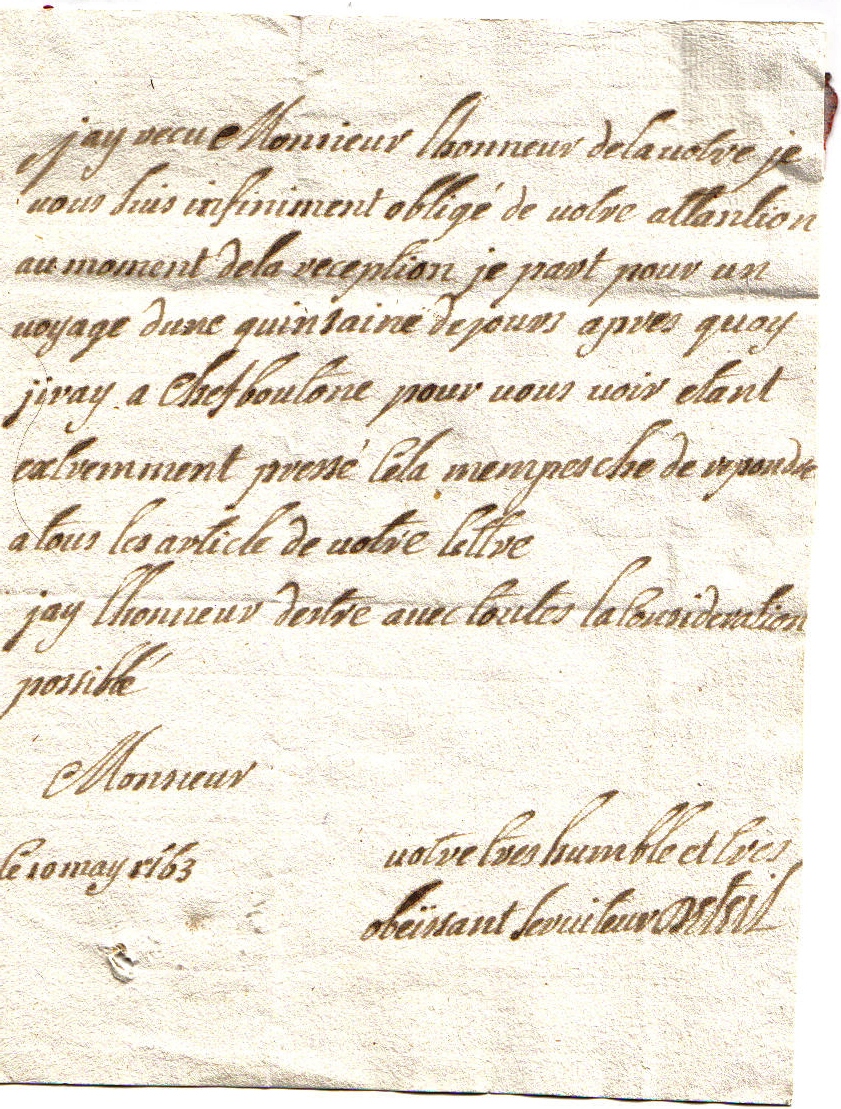 jay recue Monsieur lhonneur dela votre je
vous suis infiniment obligé de votre attantion
au moment dela reception je part pour un
voyage dune quinsaine de jours apres quoy
jiray a Chefboutone pour vous voir etant
extremment pressé Cela mempesche de repondre
a tous les article de votre lettre
jay lhonneur destre avec toutes la Consideration
possiblé
Monsieur
le 10 may 1763
votre tres humble et tres
obeïssant serviteur